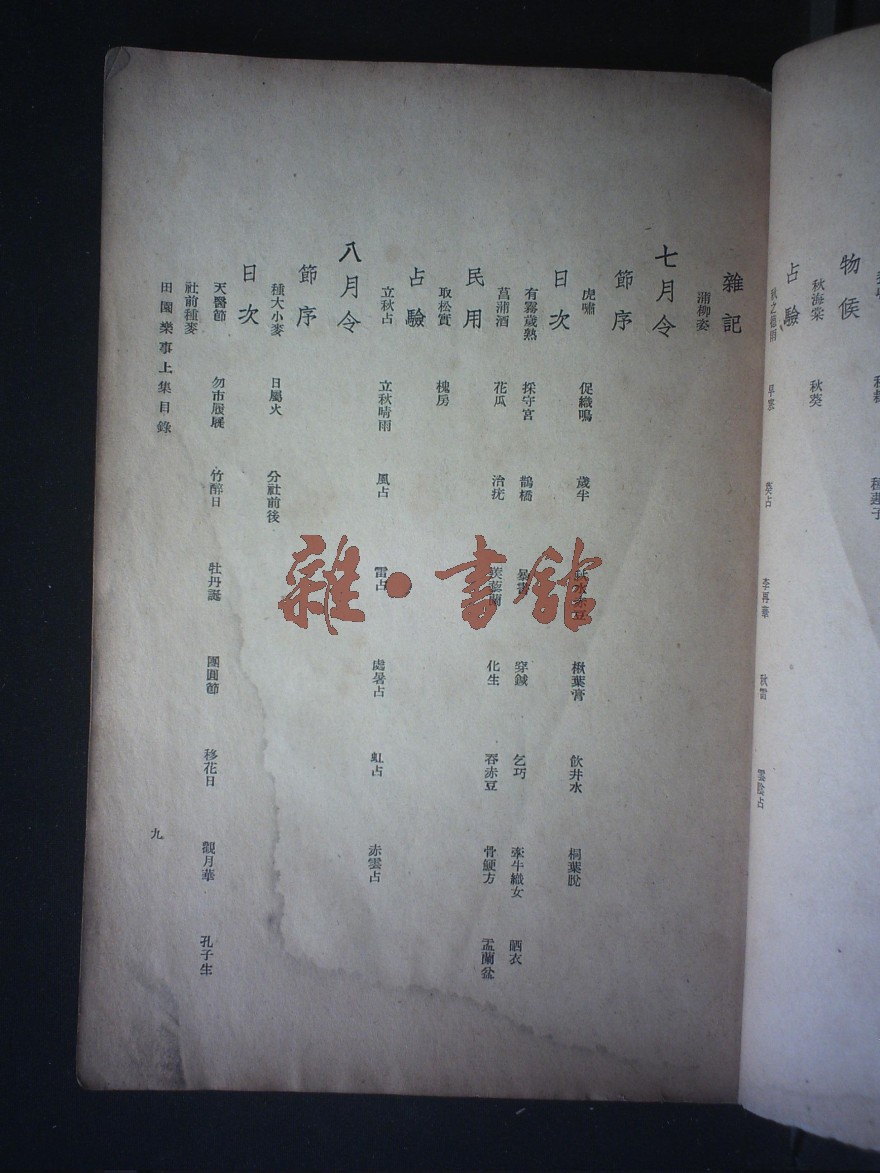 物候
秋海棠 秋葵
占驗
李再華
秋雷
雜記
蒲柳姿
七月令
節序
虎嘯 促織鳴 歲半 楸葉膏 飲井水 桐葉脫
日次
有霧歲熟 採守宮 鵲橋 暴書 穿鍼 乞巧 牽牛織女 晒衣
菖蒲酒 花瓜 治疣 化生 吞赤豆 骨鯁方 盂蘭盆
民用
取松實 槐房
占驗
立秋占 立秋晴雨 風占 雷占 處暑占 虹占 赤雲占
八月令
節序
種大小麥 日屬火 分社前後
日次
天醫節 勿市履屐 竹醉日 牡丹誕 團圓節 移花日 觀月華 孔子生
社前種麥
田園樂事上集目錄
九
雜·書舘